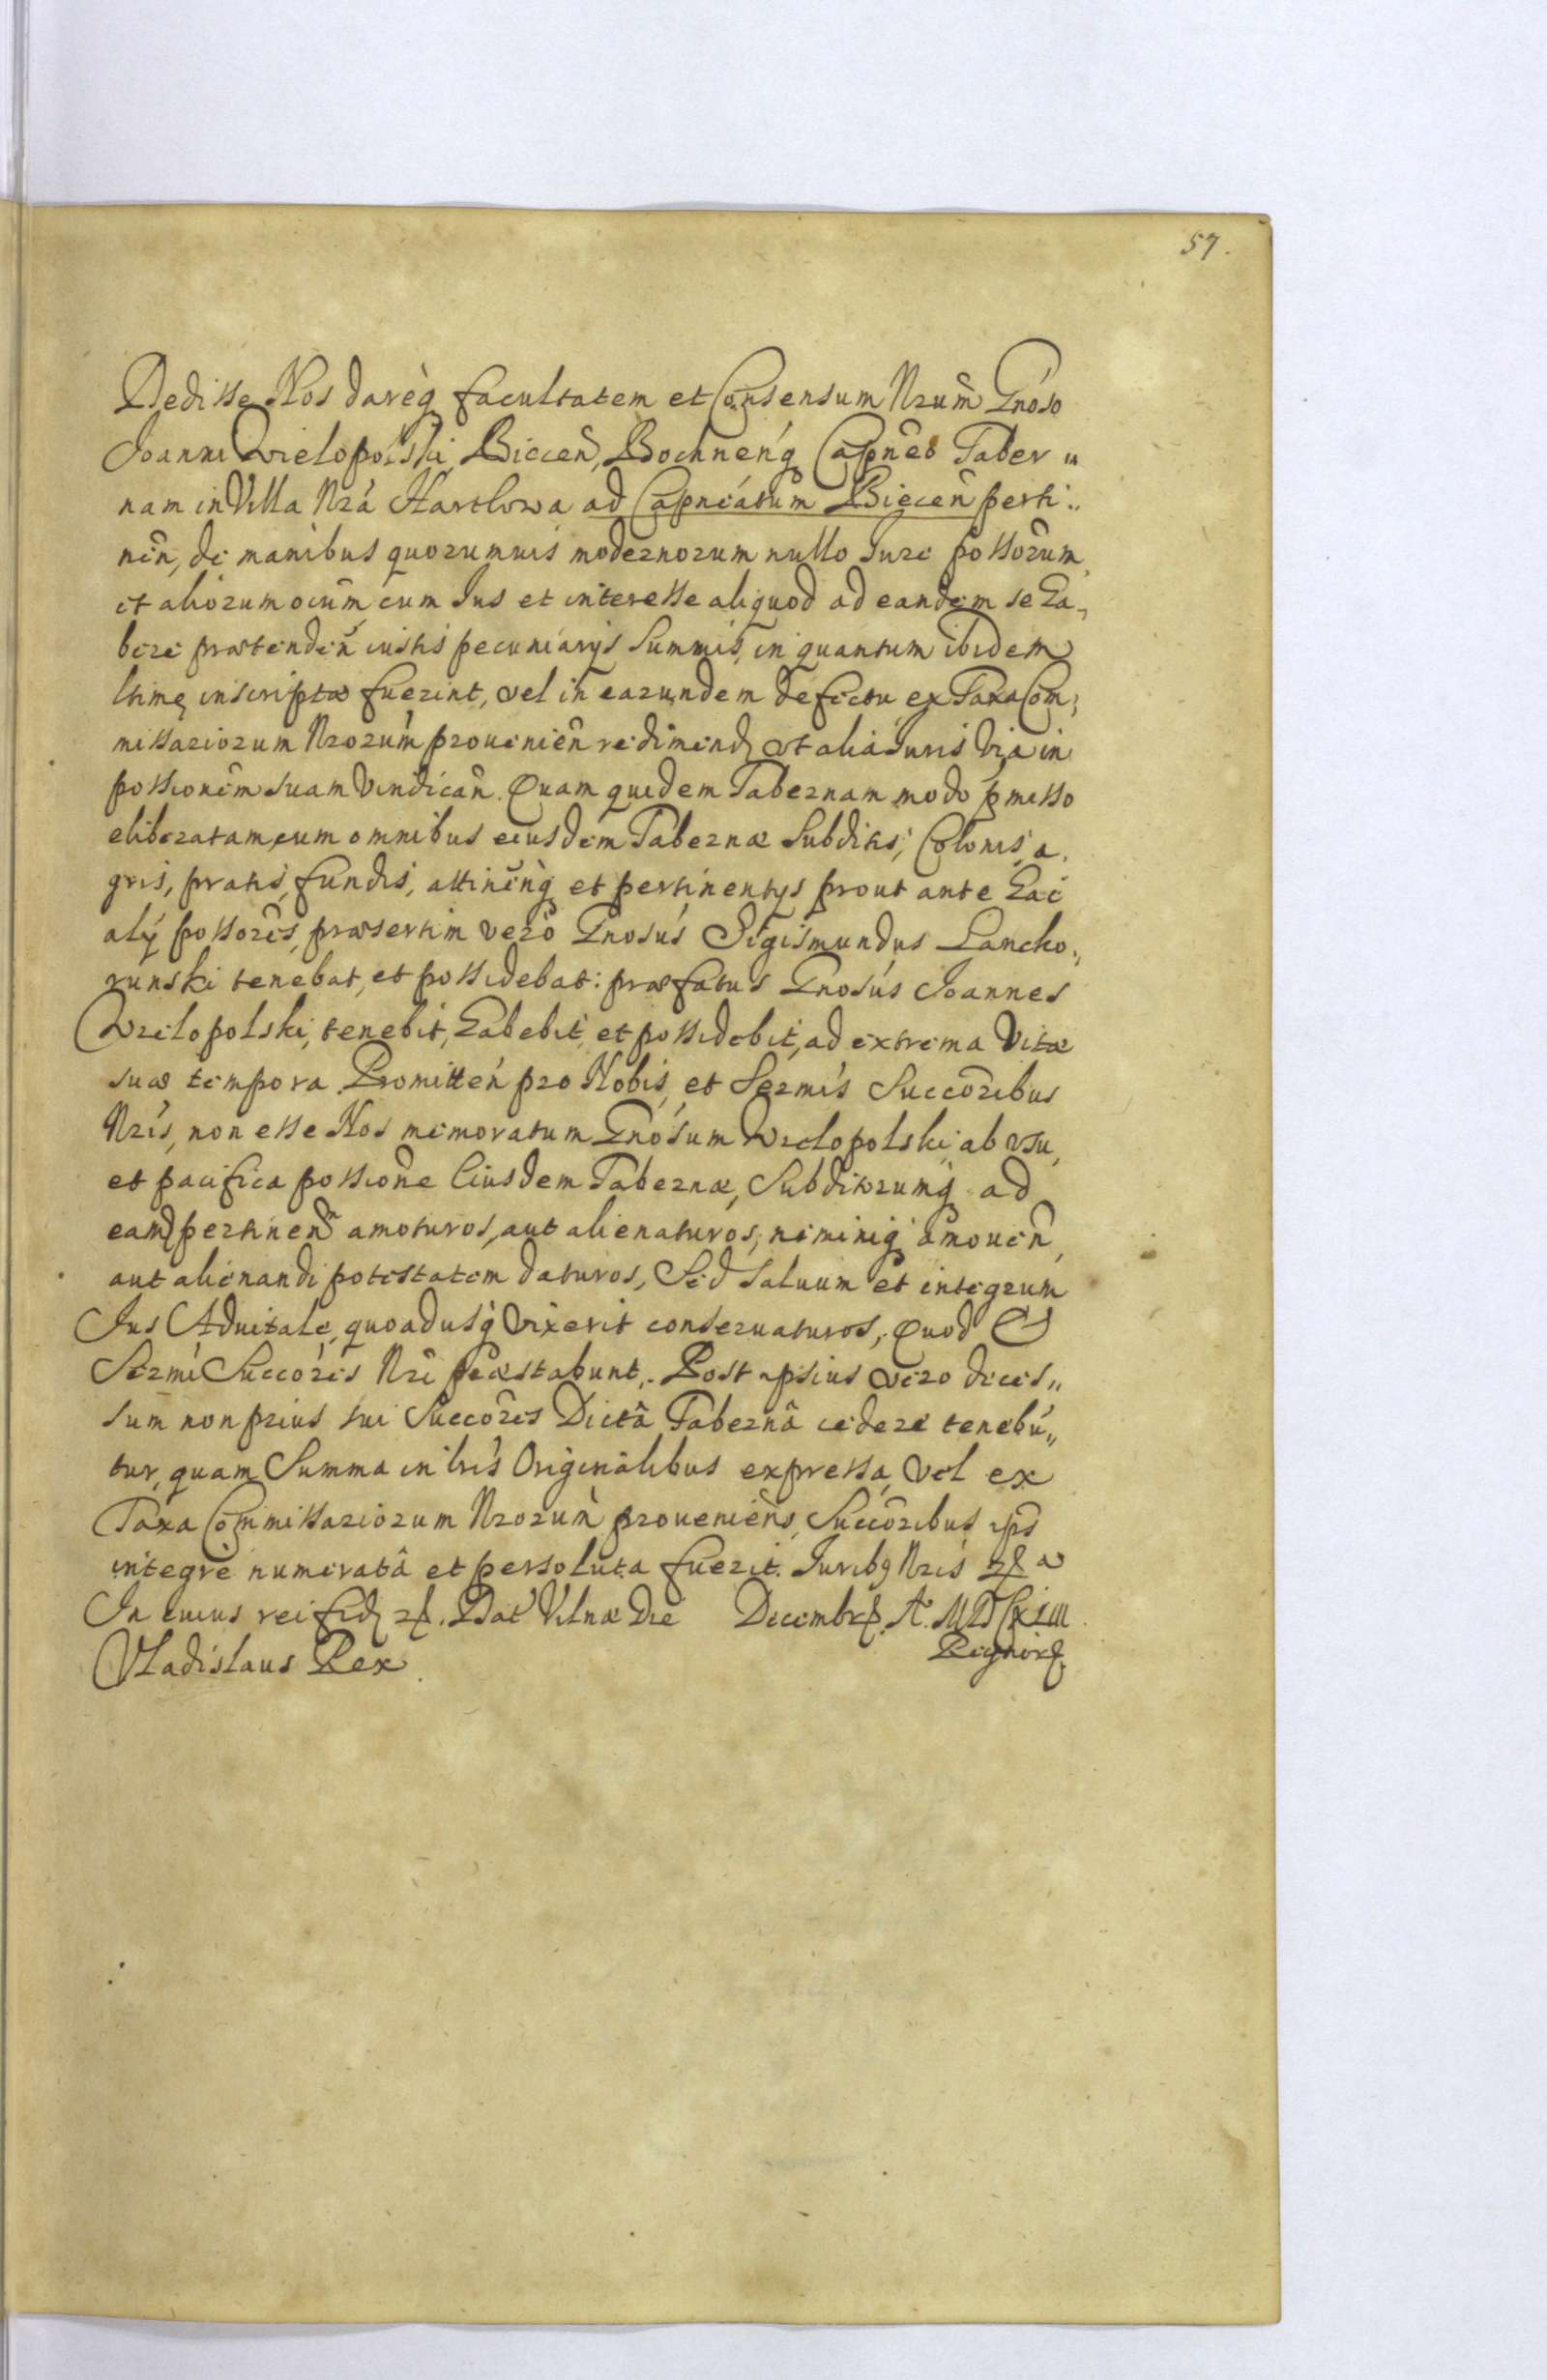 57.
Dedisse Nos darèq facultatem et Consensum Nrum̃ Gnoso
Joanni Wielopolski, Biecen̄, Bochnenq̃ Capneo Taber„
nam in Villa Nrá Hartlowa ad Capneátum Biecen̄ perti„
nen̄, de manibus quorumuis modernorum nullo Jure possorum,
et aliorum oium̃, cum Jus et interesse aliquod ad eandem se ha„
bere prætenden̄, iustis pecuniarijs Summis, in quantum ibidem
ltime inscriptæ fuerint, vel in earundem defectu ex Taxa Com„
missariorum Nrorum̃ prouenien̄ redimend, et alia Juris Via in
possionem suam Vindican̄. Quam quidem Tabernam modo pmisso
eliberatam, cum omnibus eiusdem Tabernæ Subditis, Colonis, a„
gris, pratis, fundis, attinenq̃ et pertinentijs, prout ante hac
alÿ possores, præsertim vero Gnosus Sigismundus Lancko„
runski tenebat, et possidebat: præfatus Gnosus Joannes
Wielopolski, tenebit, habebit, et possidebit, ad extrema Vitæ
suæ tempora. Promitten̄ pro Nobis, et Sermis Succoribus
Nris, non esse Nos memoratum Gnosum Wielopolski, ab vsu,
et pacifica possione Eiusdem Tabernæ, Subditorumq̃ ad
eamd pertinen amoturos, aut alienaturos, neminiq̃ amouen̄,
aut alienandi potestatem daturos, Sed saluum et integrum
Jus Aduitale, quoadusq̃ Vixerit conseruaturos, Quod &
Sermi Succores Nri pæstabunt. Post ipsius vero deces„
sum non prius sui Succores Dictâ Tabernâ cedere tenebu„
tur, quam Summa in lris Originalibus expressa, vel ex
Taxa Commissariorum Nrorum̃ proueniens, Succoribus ips
integre numerata et persoluta fuerit. Juribq Nris
In cuius rei fid. Dat Vilnæ Die Decembr. A. MDCxLIII.
Vladislaus Rex. Regnor